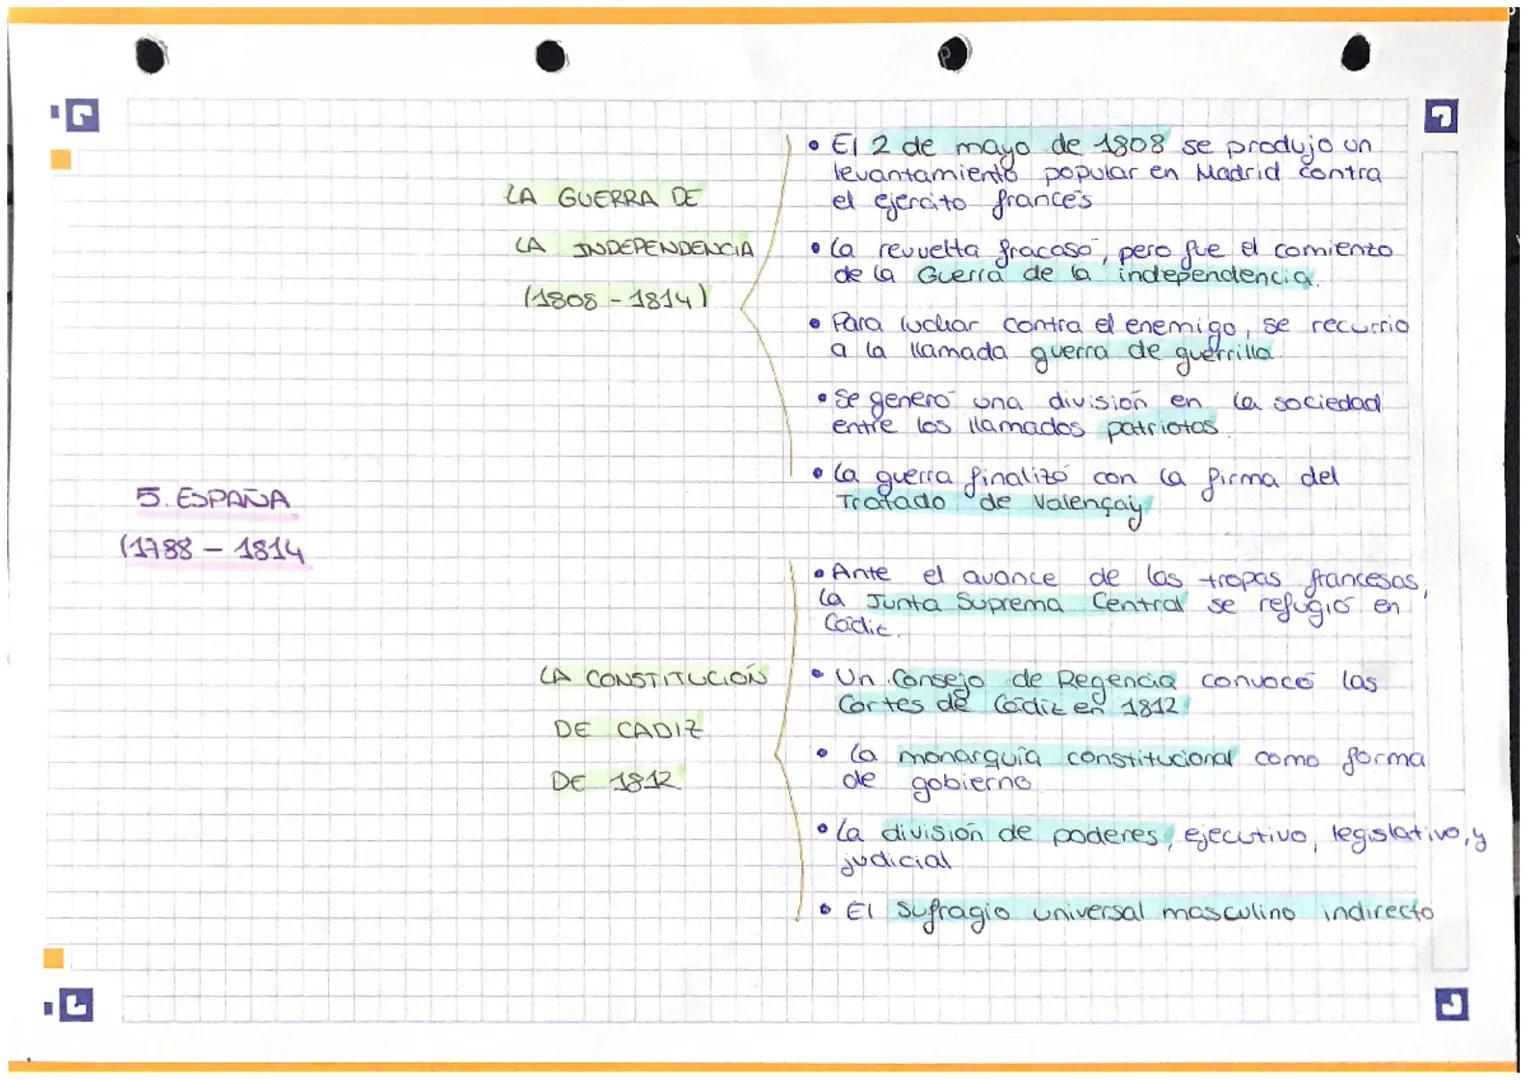 5. ESPAÑA
(1788 - 1814
LA GUERRA DE
LA INDEPENDENCIA
(1808 - 1814)
• El 2 de mayo de 1808 se produjo un
levantamiento popular en Madrid contra
el ejercito francés
• La revuelta fracasó, pero fue el comienzo
de la Guerra de la independencia.
• Para luchar contra el enemigo, se recurrio
a la llamada guerra de guerrilla
• Se generó una división en la sociedad
entre los llamados patriotas.
• La guerra finalizó con la firma del
Tratado de Valençay
LA CONSTITUCIÓN
DE CADIZ
DE 1812
• Ante el avance de las tropas francesas,
la Junta Suprema Central se refugió en
Cádiz.
• Un Consejo de Regencia convocó las
Cortes de Cádiz en 1812
• La monarquía constitucional como forma
de gobierno
• La división de poderes, ejecutivo, legislativo, y
judicial
• El sufragio universal masculino indirecto